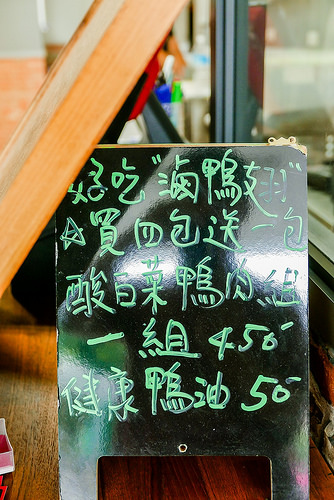 好吃"滷鴨翅"
☆買四包送一包
酸白菜鴨肉組
一組 450-
健康鴨油 50-